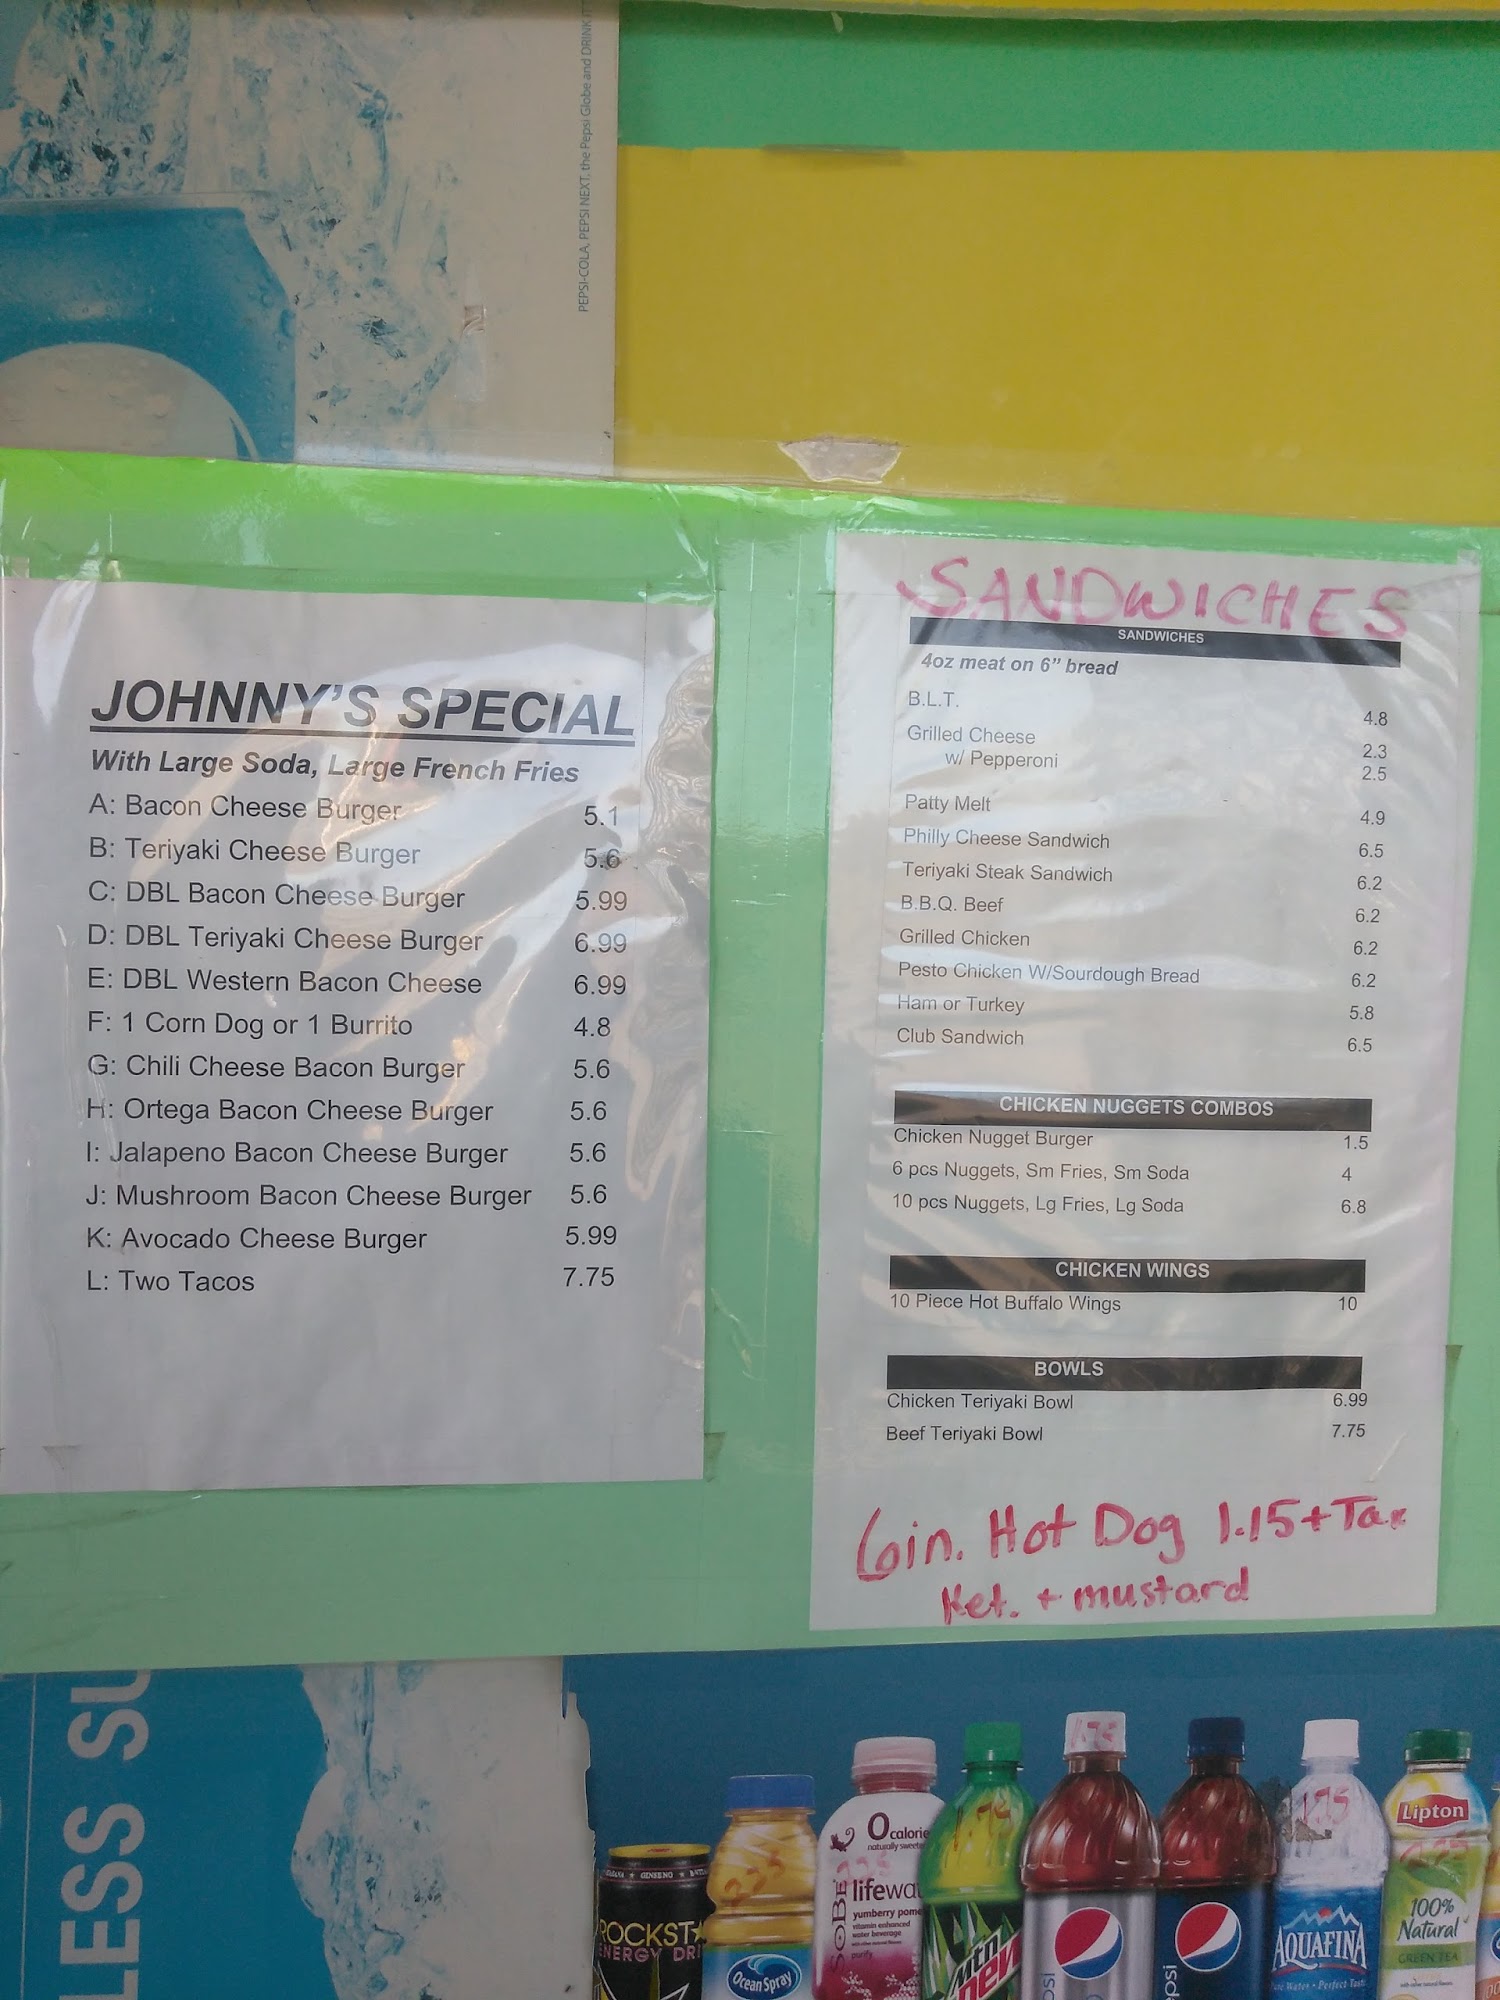 PEPSI-COLA, PEPSI NEXT, the Pepsi Globe and DRINK IT
JOHNNY'S SPECIAL
With Large Soda, Large French Fries
A: Bacon Cheese Burger 5.1
B: Teriyaki Cheese Burger 5.6
C: DBL Bacon Cheese Burger 5.99
D: DBL Teriyaki Cheese Burger 6.99
E: DBL Western Bacon Cheese 6.99
F: 1 Corn Dog or 1 Burrito 4.8
G: Chili Cheese Bacon Burger 5.6
H: Ortega Bacon Cheese Burger 5.6
I: Jalapeno Bacon Cheese Burger 5.6
J: Mushroom Bacon Cheese Burger 5.6
K: Avocado Cheese Burger 5.99
L: Two Tacos 7.75
SANDWICHES
SANDWICHES
4oz meat on 6" bread
B.L.T. 4.8
Grilled Cheese 2.3
w/ Pepperoni 2.5
Patty Melt 4.9
Philly Cheese Sandwich 6.5
Teriyaki Steak Sandwich 6.2
B.B.Q. Beef 6.2
Grilled Chicken 6.2
Pesto Chicken W/Sourdough Bread 6.2
Ham or Turkey 5.8
Club Sandwich 6.5
CHICKEN NUGGETS COMBOS
Chicken Nugget Burger 1.5
6 pcs Nuggets, Sm Fries, Sm Soda 4
10 pcs Nuggets, Lg Fries, Lg Soda 6.8
CHICKEN WINGS
10 Piece Hot Buffalo Wings 10
BOWLS
Chicken Teriyaki Bowl 6.99
Beef Teriyaki Bowl 7.75
6in. Hot Dog 1.15+Tax
Ket. + mustard
LESS SU
GINSENG
ROCKSTA
ENERGY DRI
Ocean Spray
0 calorie
naturally sweete
SOBE
lifewat
yumberry pome
vitamin enhanced
water beverage
purify
Mtn
Dew
psi
epsi
1.75
AQUAFINA
Pure Water • Perfect Taste
Lipton
100%
Natural
GREEN TEA